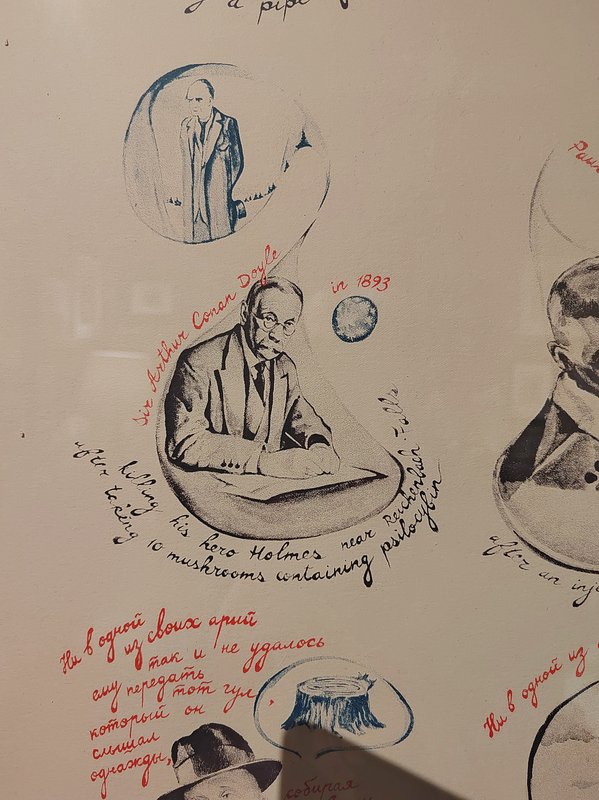 a pipe
Sir Arthur Conan Doyle
in 1893
killing his hero Holmes near Reichenbah Falls
after taking 10 mushrooms containing psilocybin
after an inj
Ни в одной
из своих арий
так и не удалось
ему передать
тот гул,
который он
слышал
однажды,
собирая
Ни в одной из